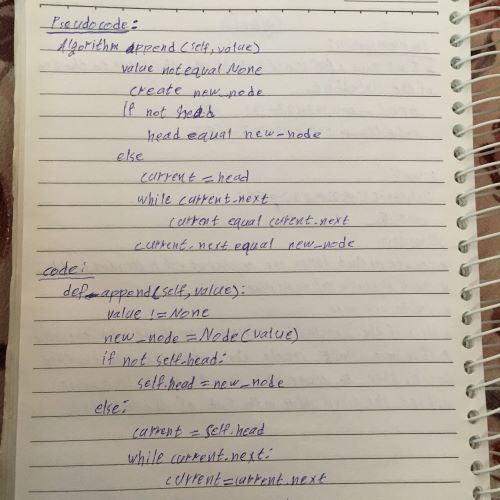 Pseudocode:
Algorithm append(self,value)
value not equal None
create new_node
if not head
head equal new_node
else
current = head
while current.next
current equal curent.next
current.next equal new_node
code:
def append(self,value):
value != None
new_node = Node(value)
if not self.head:
self.head = new_node
else:
current = self.head
while current.next:
current=current.next